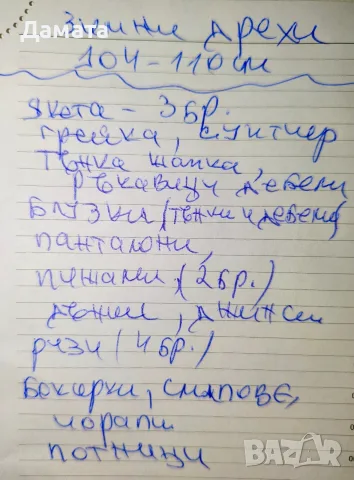 Дамата
Зимни дрехи
104-110см
Якета - 3бр.
грейка, суитчер
Тънка шапка,
ръкавици дебели
БЛУЗКИ (тънки и дебели)
панталони,
пижами (2бр.)
дънки, джинси
ризи (4бр.)
Боксерки, слипове,
чорапи
потници
BAZAR